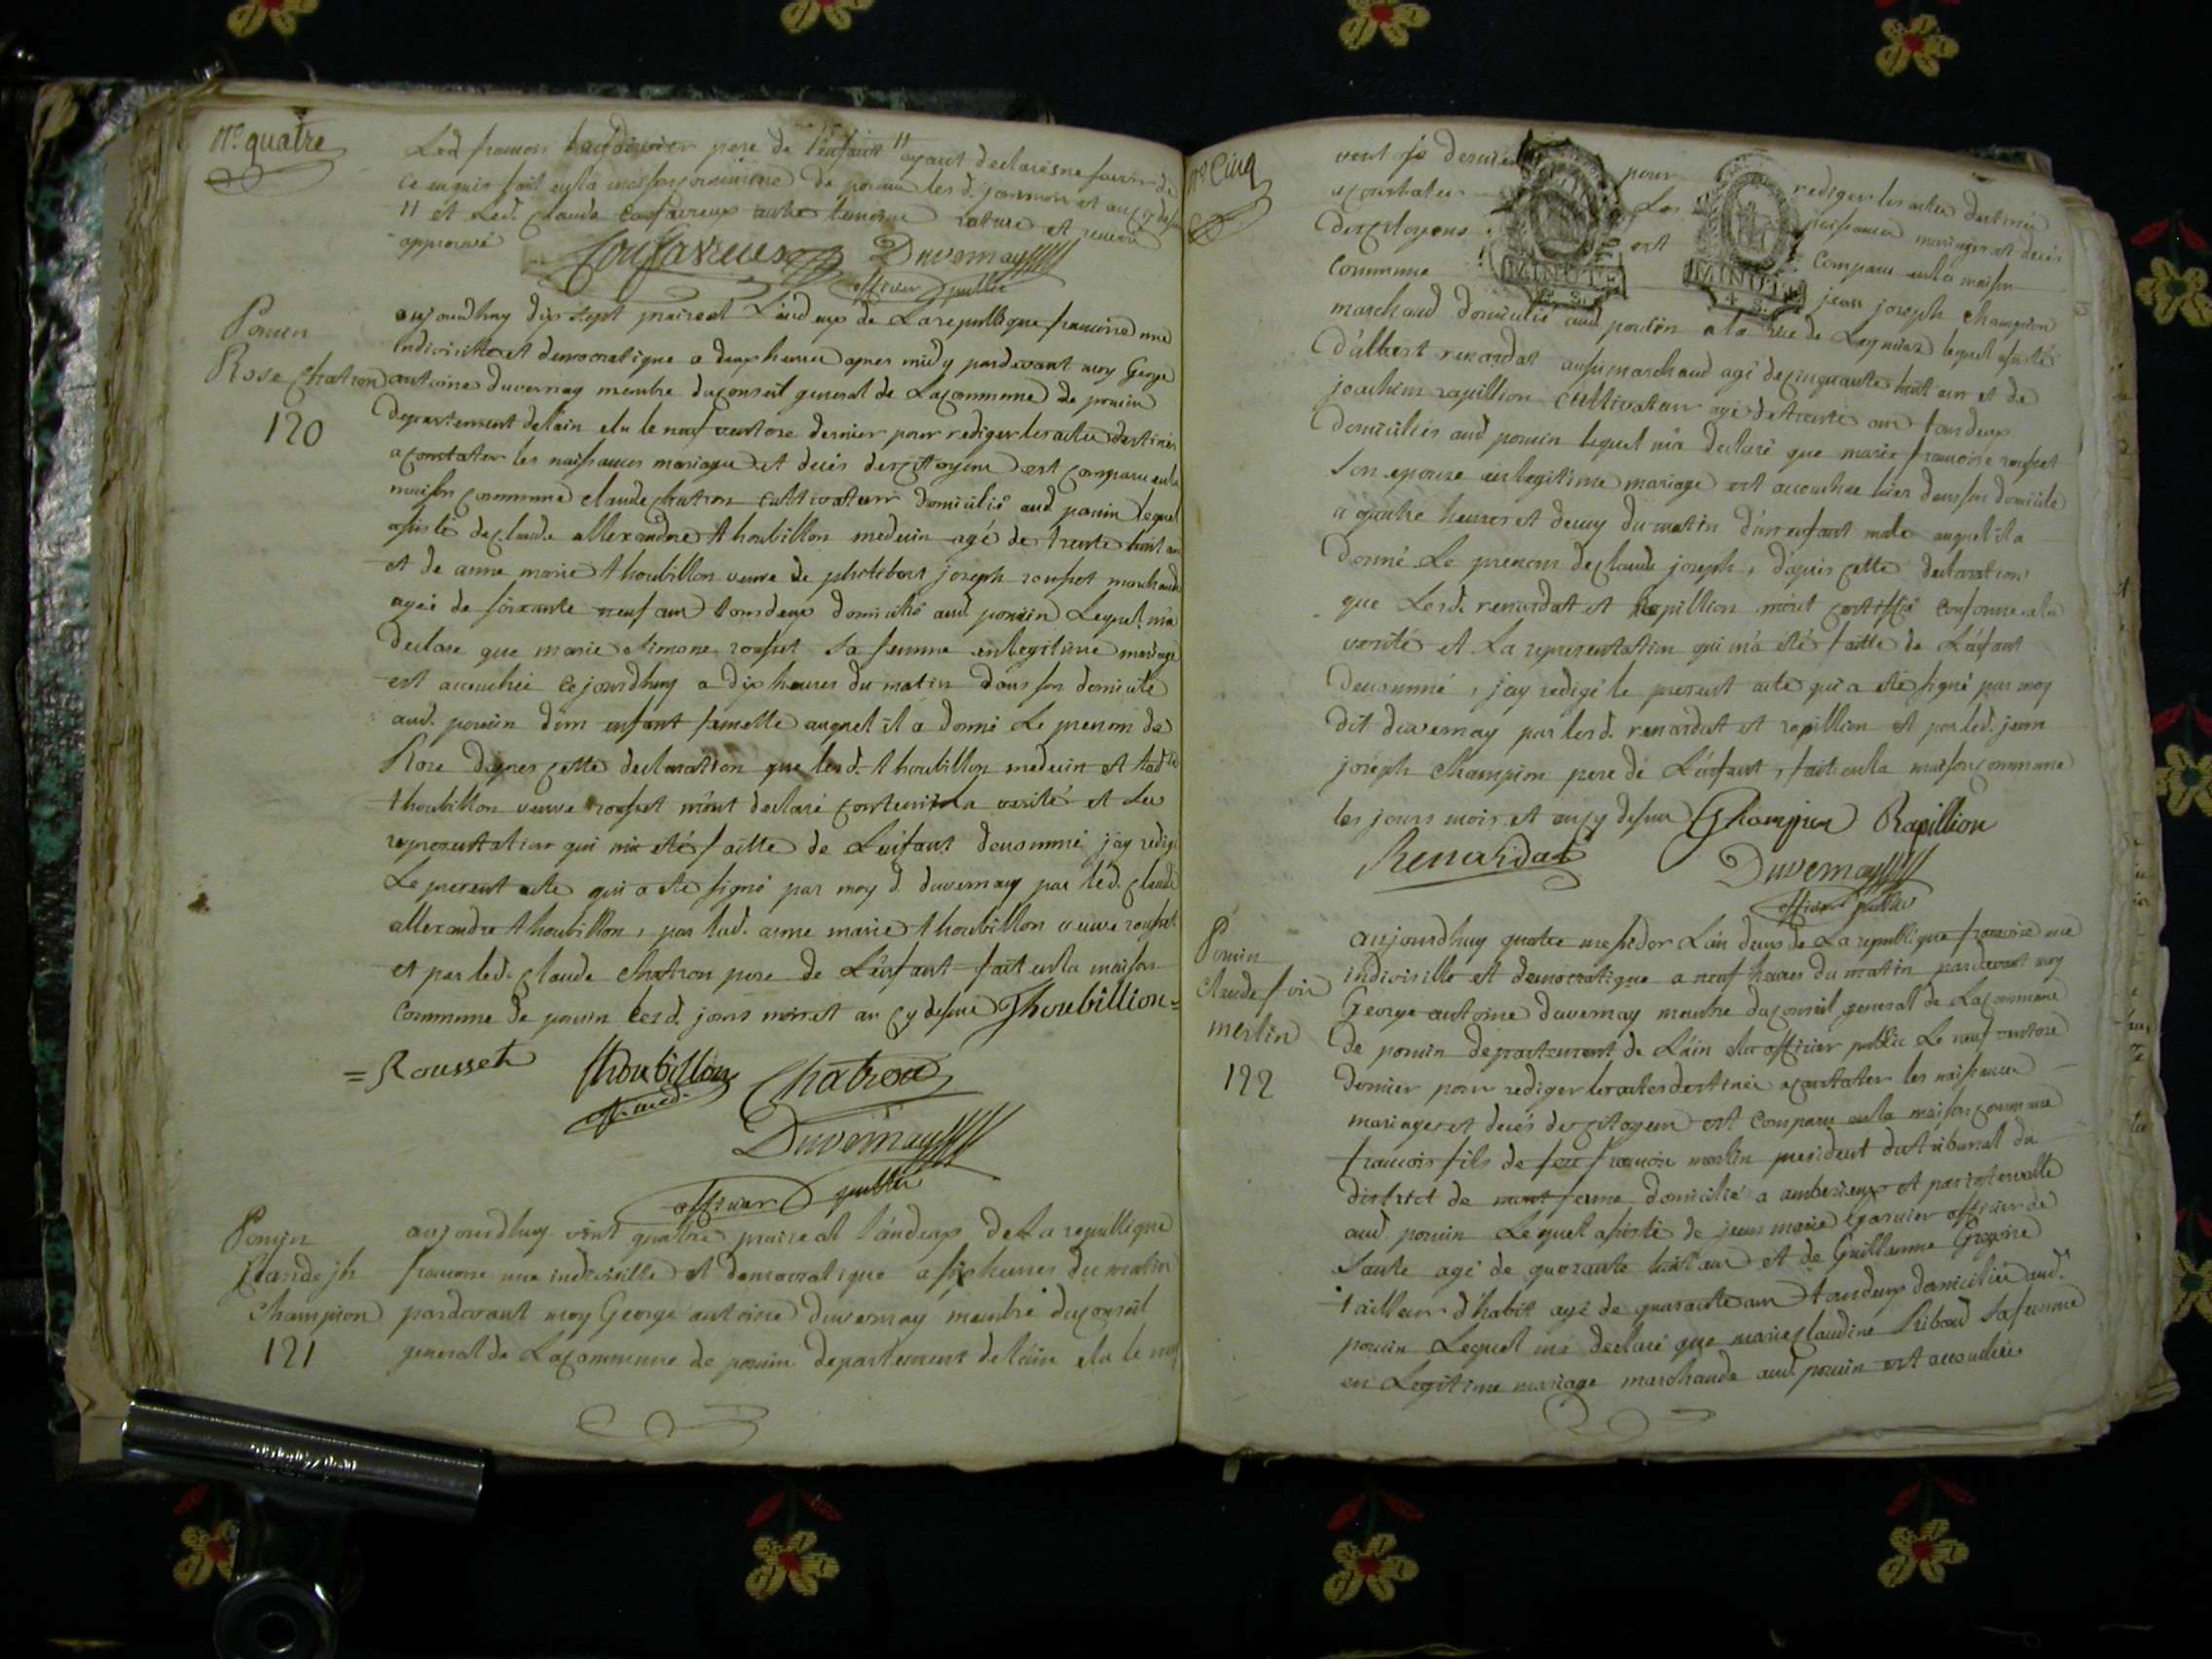 N.° quatre
Led francois pere de l'enfant " ayant declaré ne savoir de
ce enquis fait en la maison commune de poncin les d. jour mois et an cy dessus
" et Led. Claude Confavreux autre temoin rature et renvoi
approuvé
Confavreux Duvernay
officier public
Poncin
Rose Chatron
120
aujourdhuy dix sept praireal L'an deux de La republique francoise une
indivisible et democratique a deux heures apres midy pardevant moy George
antoine duvernay membre du conseil general de La commune de poncin
departement de lain elu le neuf ventose dernier pour rediger les actes destinés
a constater les naissances mariages et décès des citoyens est comparu en la
maison commune claude chatron cultivateur domicilié aud. poncin lequel
assisté de claude allexandre thoubillon medecin agé de trente huit ans
et de anne marie thoubillon veuve de philibert joseph rousset marchand
agée de soixante neuf ans tous deux domiciliés aud. poncin Lequel m'a
declare que marie simone rousset sa femme en legitime mariage
est accouchée cejourdhuy a dix heures du matin dans son domicile
aud. poncin d'un enfant femelle auquel il a donné Le prenom de
Rose dapres cette declaration que lesd. thoubillon medecin et lad.te
thoubillon veuve rousset m'ont declaré contenir la verité et La
representation qui m'a eté faitte de L'enfant denommé j'ay redigé
Le present acte qui a eté signé par moy d. duvernay par led. claude
allexandre thoubillon, par lad. anne marie thoubillon veuve rousset
et par led. claude chatron pere de L'enfant fait en la maison
commune de poncin lesd. jours mois et an cy dessus Thoubillion =
= Rousset Thoubillon Chatron
med.
Duvernay
officier public
Poncin
Claude jh
Champion
121
aujourdhuy vint quatre praireal l'an deux de La republique
francoise une indivisible et democratique a six heures du matin
pardevant moy George antoine duvernay membre du conseil
general de La commune de poncin departement de lain elu le neuf
N.° Cinq
vent ose dernier pour rediger les actes destinés
a constater Les naissances mariages et décès
des citoyens est comparu en la maison
commune jean joseph champion
MINUTE
4 S.
MINUTE
4 S.
marchand domicilié aud. poncin a la rue de Leymiaz lequel assisté
d'albert renardat aussi marchand agé de cinquante huit ans et de
joachim rapillion cultivateur agé de trente ans tous deux
domiciliés aud. poncin lequel m'a declaré que marie francoise rousset
son epouse en legitime mariage est accouchee hier dans son domicile
a quatre heures et demy du matin d'un enfant male auquel il a
donné Le prenom de claude joseph, d'apris cette declaration
que Lesd. renardat et Rapillion m'ont certiffié conforme a la
verité et La representation qui m'a eté faitte de L'enfant
denommé, j'ay redigé le present acte qui a eté signé par moy
dit duvernay par lesd. renardat et rapillion et par led. jean
joseph champion pere de L'enfant, fait en la maison commune
les jours mois et an cy dessus Champion Rapillion
Renardat
Duvernay
officier public
Poncin
Claude
merlin
122
aujourdhuy quatre messidor L'an deux de La republique francoise une
indivisible et democratique a neuf heures du matin pardevant moy
George antoine duvernay membre du conseil general de La commune
de poncin departement de L'ain elu officier public Le neuf ventose
dernier pour rediger les actes destinés a constater les naissances
mariages et décès des citoyens est comparu en la maison commune
francois fils de feu francois merlin president du tribunal du
district de mont ferme domicilié a amberieux et par intervalle
aud. poncin Lequel assisté de jean marie garnier officier de
santé agé de quarante huit ans et de Guillaume Gregoire
tailleur d'habit agé de quarante ans tous deux domiciliés aud.
poncin Lequel m'a declaré que marie claudine Ribaud sa femme
en Legitime mariage marchande aud. poncin est accouchée